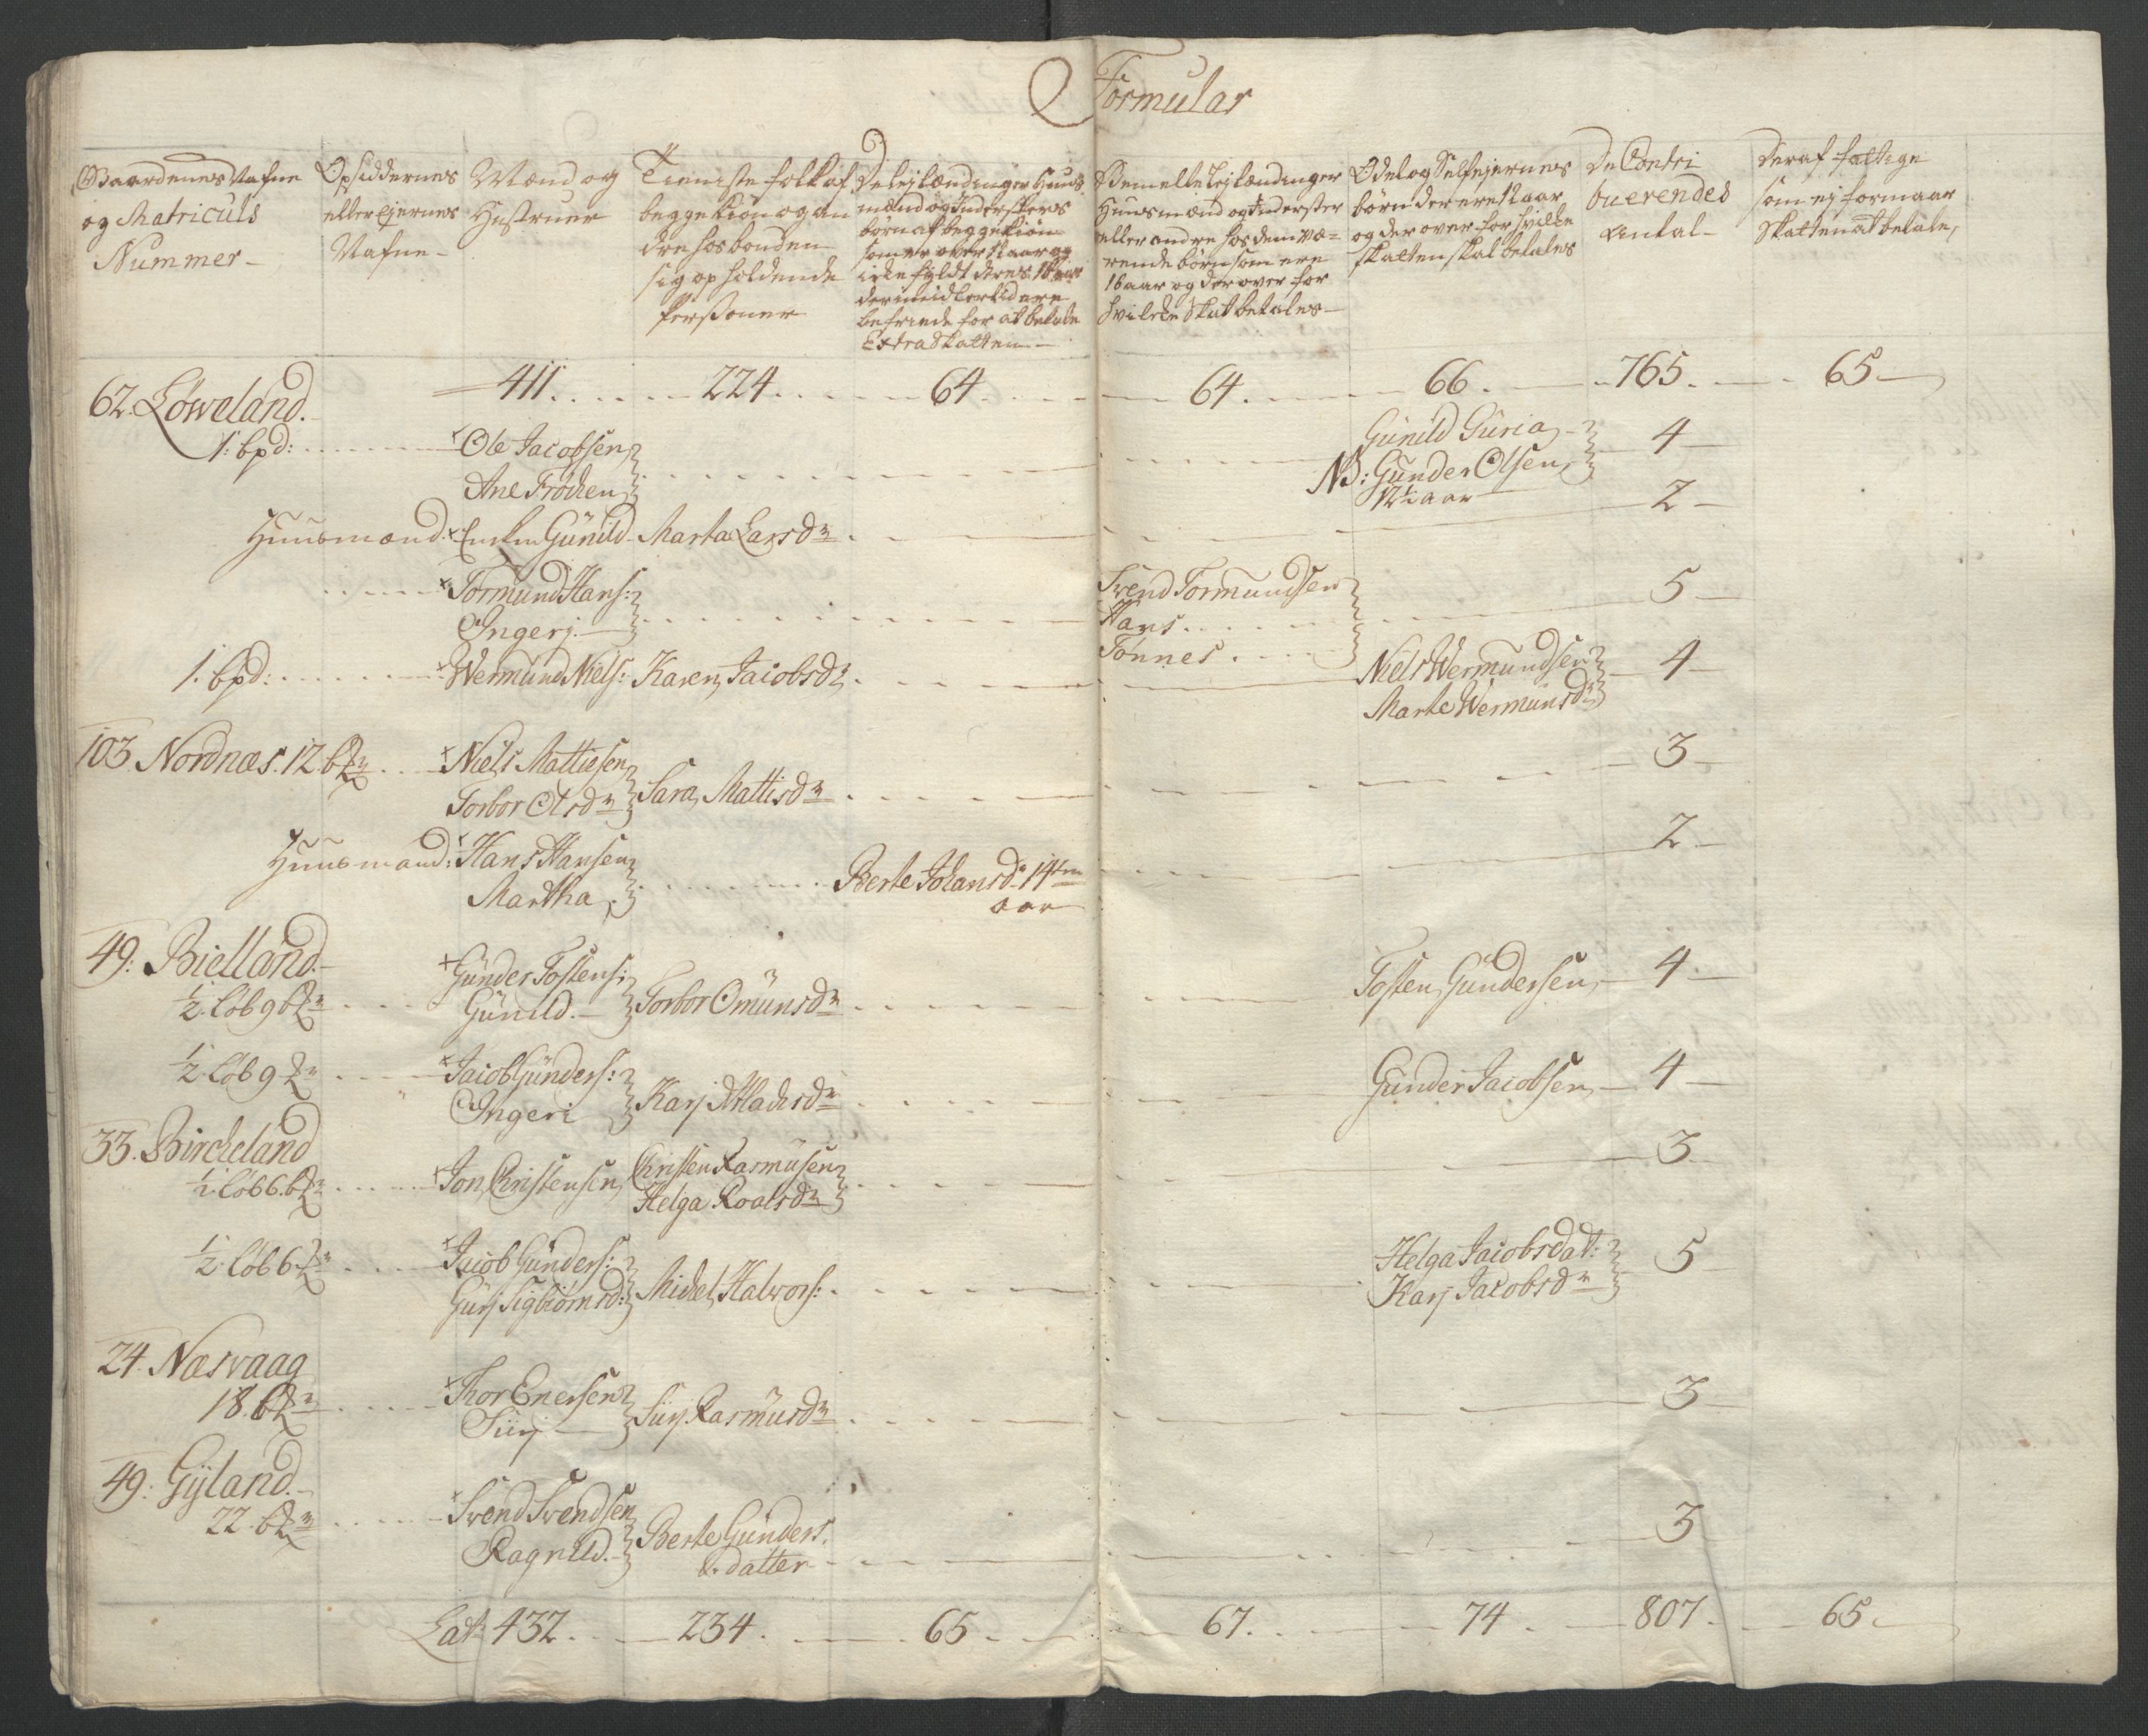 Formular
Gaardenes Nafne
og Matriculs
Nummer
Opsiddernes
eller Ejernes
Nafne
Mænd og
Hustruer
Tieniste folk af
begge Kiøn og an
dre hos bonden
sig opholdende
Personer
De lejlændinger Huus
mænd og Indersters
børn af begge Kiøn
som er over 12 aar og
icke fyldt deres 16 aar
der imidlertid ere
befriede for at betale
Extra Skatten
Bemelte Lejlændinger
Huusmænd og Inderster
eller andre hos dem væ=
rende børn som ere
16 aar og derover for
hvilcke Skat betales
Odel og Selfejernes
børn der ere 12 aar
og der over for hvilke
skatten skal betales
De Contri
buerendes
Antal
Deraf fattige
som ej formaar
Skatten at betale,
411 224 64 64 66 765 65
62. Löweland.
1. bpd: Ole Jacobsen
Ane Trochen
Gunild Guria
NB: Gunder Olsen
12½ aar
4
Huusmænd Gunild Marta Larsdr 2
Tormund Hans:
Ingerj
Svend Tormundsen
Hans
Tonnes
5
1. bpd: Wermund Niels: Karen Jacobsdr Niels Wermundsen
Marte Wermunsdr
4
103. Nordnæs. 12 Niels Mattiesen
Torbor Olsdr Sara Mattisdr 3
Huusmand: Hans Hansen
Martha
Berte Johansd: 14ten
aar
2
49: Bielland
½ Løb 9 Gunder Tostens:
Gunild. Torbor Omunsdr Tosten Gundersen 4
½ Løb 9 Jacob Gunders:
Ingeri Karj Gunder Jacobsen 4
33. Bircheland
½ Løb 6 Jon Christensen Christen Rasmusen
Helga Roalsdr 3
½ Løb 6 Jacob Gunders:
Gurj Sigbiörnsd: Michel Halvors: Helga Jacobsdat:
Karj Jacobsdr 5
24. Næsvaag
18 Thor Enersen
Siirj Siirj Rasmusdr 3
49: Gÿland.
22 Svend Svendsen
Ragnild. Berte Gunders
datter 3
Lat 432 234 65 67 74 807 65